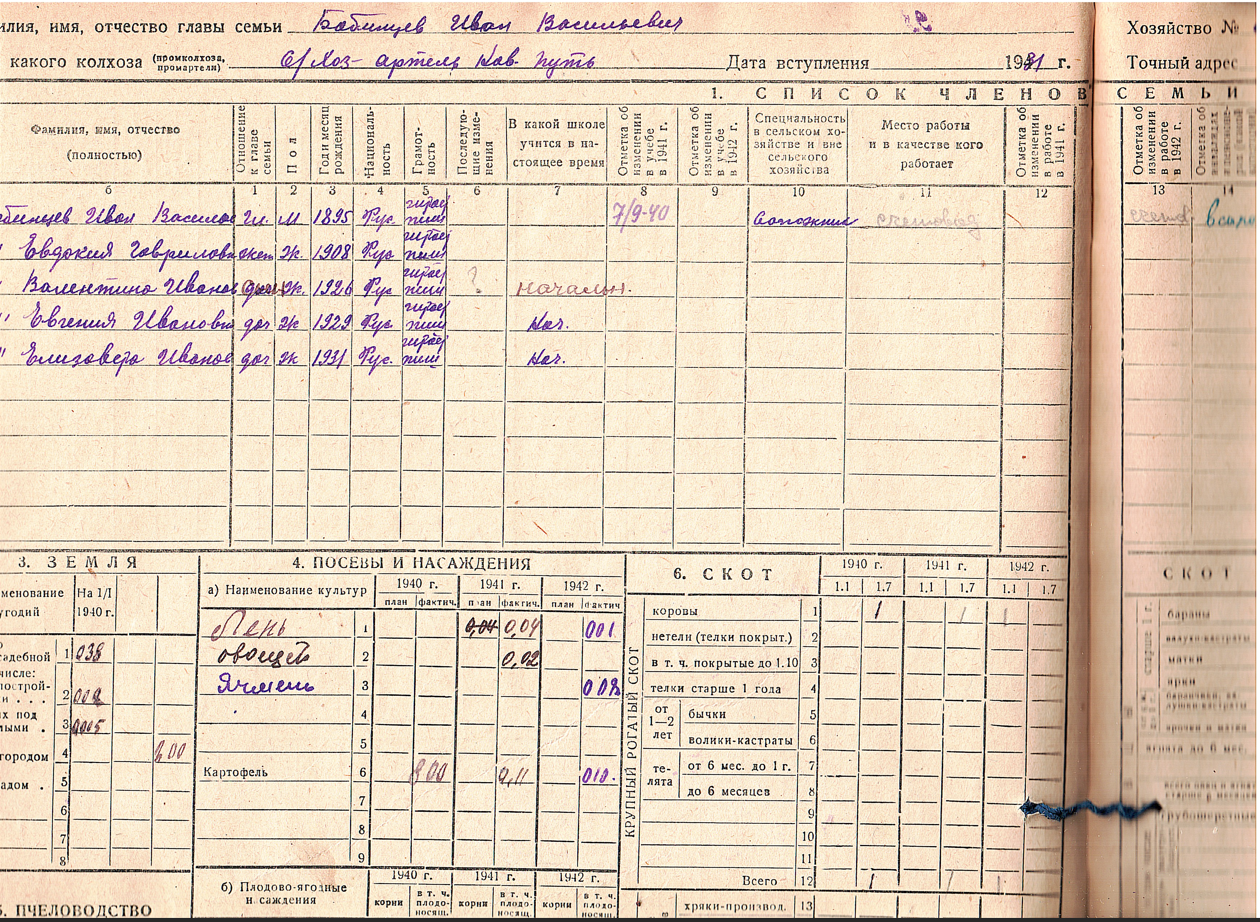 илия, имя, отчество главы семьи Бабинцев Иван Васильевич
Хозяйство №
какого колхоза (промколхоза, промартели) С/Хоз- артель Нов. путь Дата вступления 1931 г.
Точный адрес
1. СПИСОК ЧЛЕНОВ СЕМЬИ
Фамилия, имя, отчество (полностью)
Отношение к главе семьи
Пол
Год и месяц рождения
Националь-ность
Грамот-ность
Последую-щие изме-нения
В какой школе учится в на-стоящее время
Отметка об изменении в учебе в 1941 г.
Отметка об изменении в учебе в 1942 г.
Специальность в сельском хо-зяйстве и вне сельского хозяйства
Место работы и в качестве кого работает
Отметка об изменении в работе в 1941 г.
Отметка об изменении в работе в 1942 г.
Отметка об
б 1 2 3 4 5 6 7 8 9 10 11 12 13 14
бинцев Иван Василье Гл. М 1895 Рус 7/9-40 Сапожник счетовод
" Евдокия Гавриловн жен ж. 1908 Рус
" Валентина Иванов доч ж. 1926 Рус ? начальн.
" Евгения Ивановн доч ж 1929 Рус Нач.
" Елизавета Иванов доч ж 1931 Рус. Нач.
3. ЗЕМЛЯ
менование угодий
На 1/I 1940 г.
садебной 1 038
числе:
построй-
2 002
х под
ыми . 3 0005
городом 4 200
адом . 5
6
7
8
5. ПЧЕЛОВОДСТВО
4. ПОСЕВЫ И НАСАЖДЕНИЯ
а) Наименование культур
1940 г. 1941 г. 1942 г.
план фактич. план фактич. план фактич
Лень 1 0,04 0,04 001
овощей 2 0,02
Ячмень 3 002
4
5
Картофель 6 0,11 010.
7
8
9
б) Плодово-ягодные насаждения
1940 г. 1941 г. 1942 г.
корни в т. ч. плодо-носящ. корни в т. ч. плодо-носящ. корни в т. ч. плодо-носящ.
6. СКОТ
1940 г. 1941 г. 1942 г.
1.1 1.7 1.1 1.7 1.1 1.7
КРУПНЫЙ РОГАТЫЙ СКОТ
коровы 1 1 1 1
нетели (телки покрыт.) 2
в т. ч. покрытые до 1.10 3
телки старше 1 года 4
от 1—2 лет
бычки 5
волики-кастраты 6
те-лята
от 6 мес. до 1 г. 7
до 6 месяцев 8
9
10
11
Всего 12 1 1 1
хряки-производ. 13
СКОТ
старше 1 г.
бараны
валухи-кастраты
матки
ярки
ягнята до 6 мес.
грубошерстных